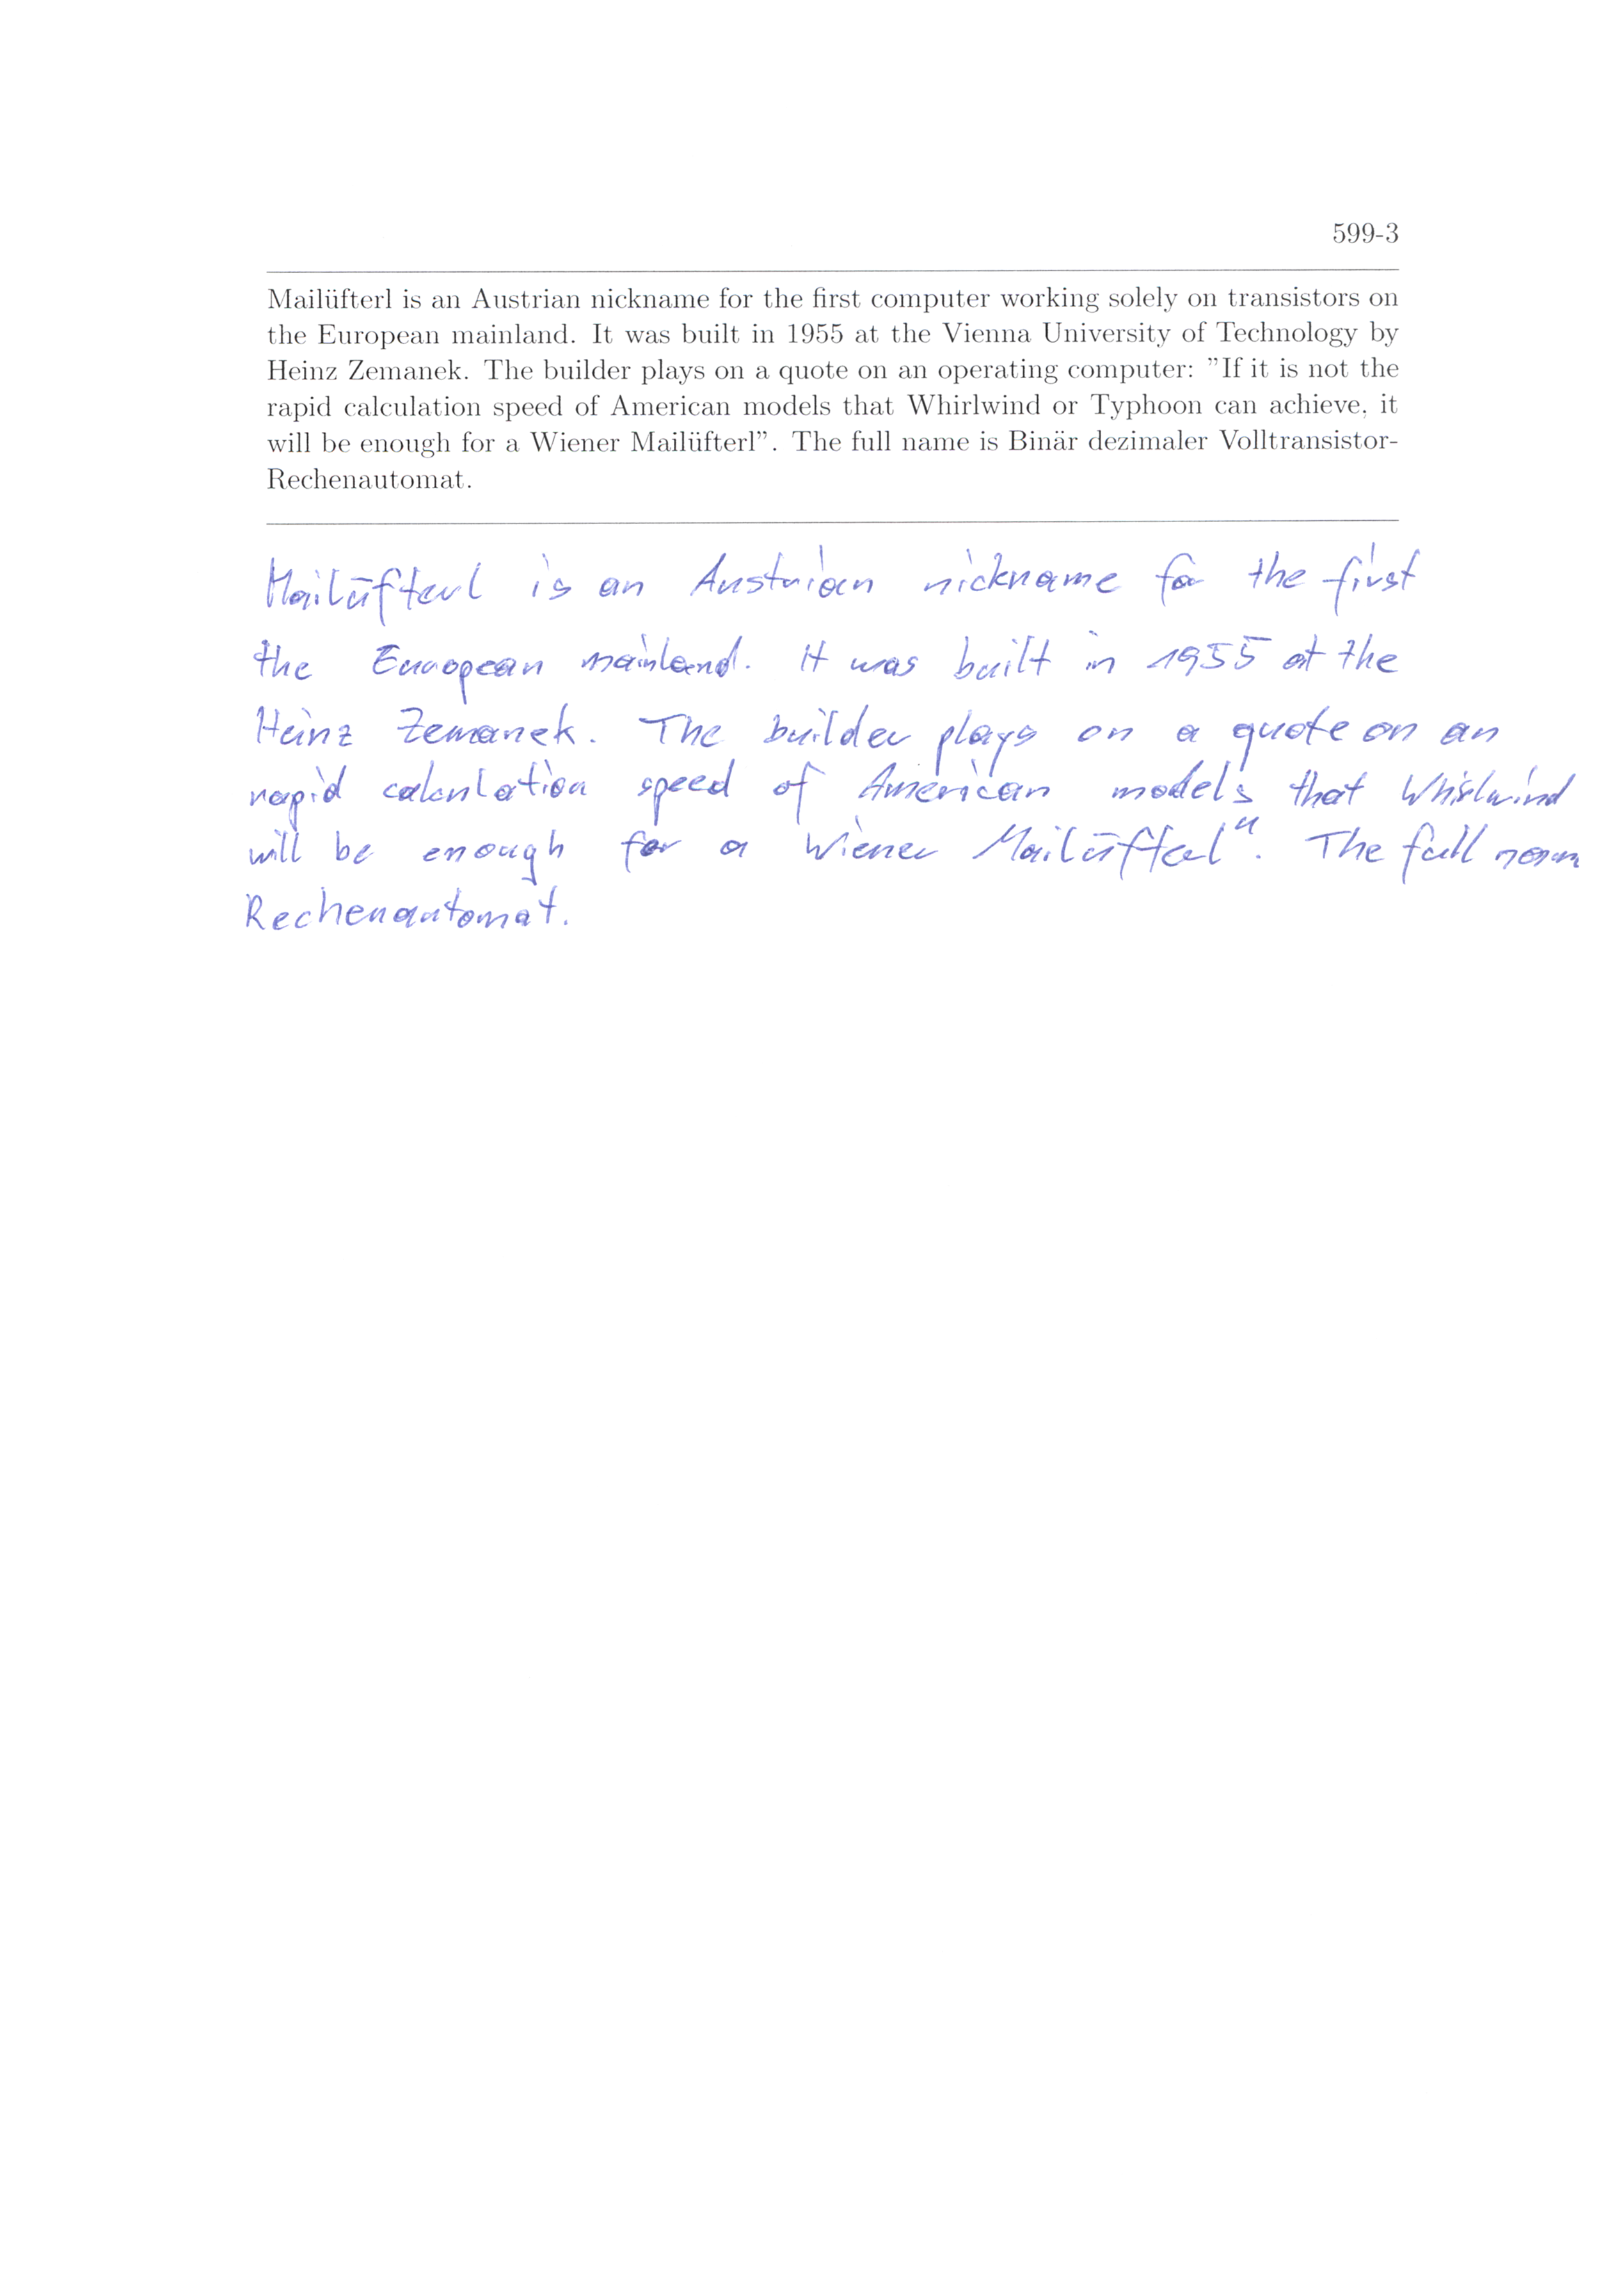 599-3
Mailüfterl is an Austrian nickname for the first computer working solely on transistors on
the European mainland. It was built in 1955 at the Vienna University of Technology by
Heinz Zemanek. The builder plays on a quote on an operating computer: ”If it is not the
rapid calculation speed of American models that Whirlwind or Typhoon can achieve, it
will be enough for a Wiener Mailüfterl”. The full name is Binär dezimaler Volltransistor-
Rechenautomat.
Mailüfterl is an Austrian nickname for the first
the European mainland. It was built in 1955 at the
Heinz Zemanek. The builder plays on a quote on an
rapid calculation speed of American models that Whirlwind
will be enough for a Wiener Mailüfterl". The full
Rechenautomat.